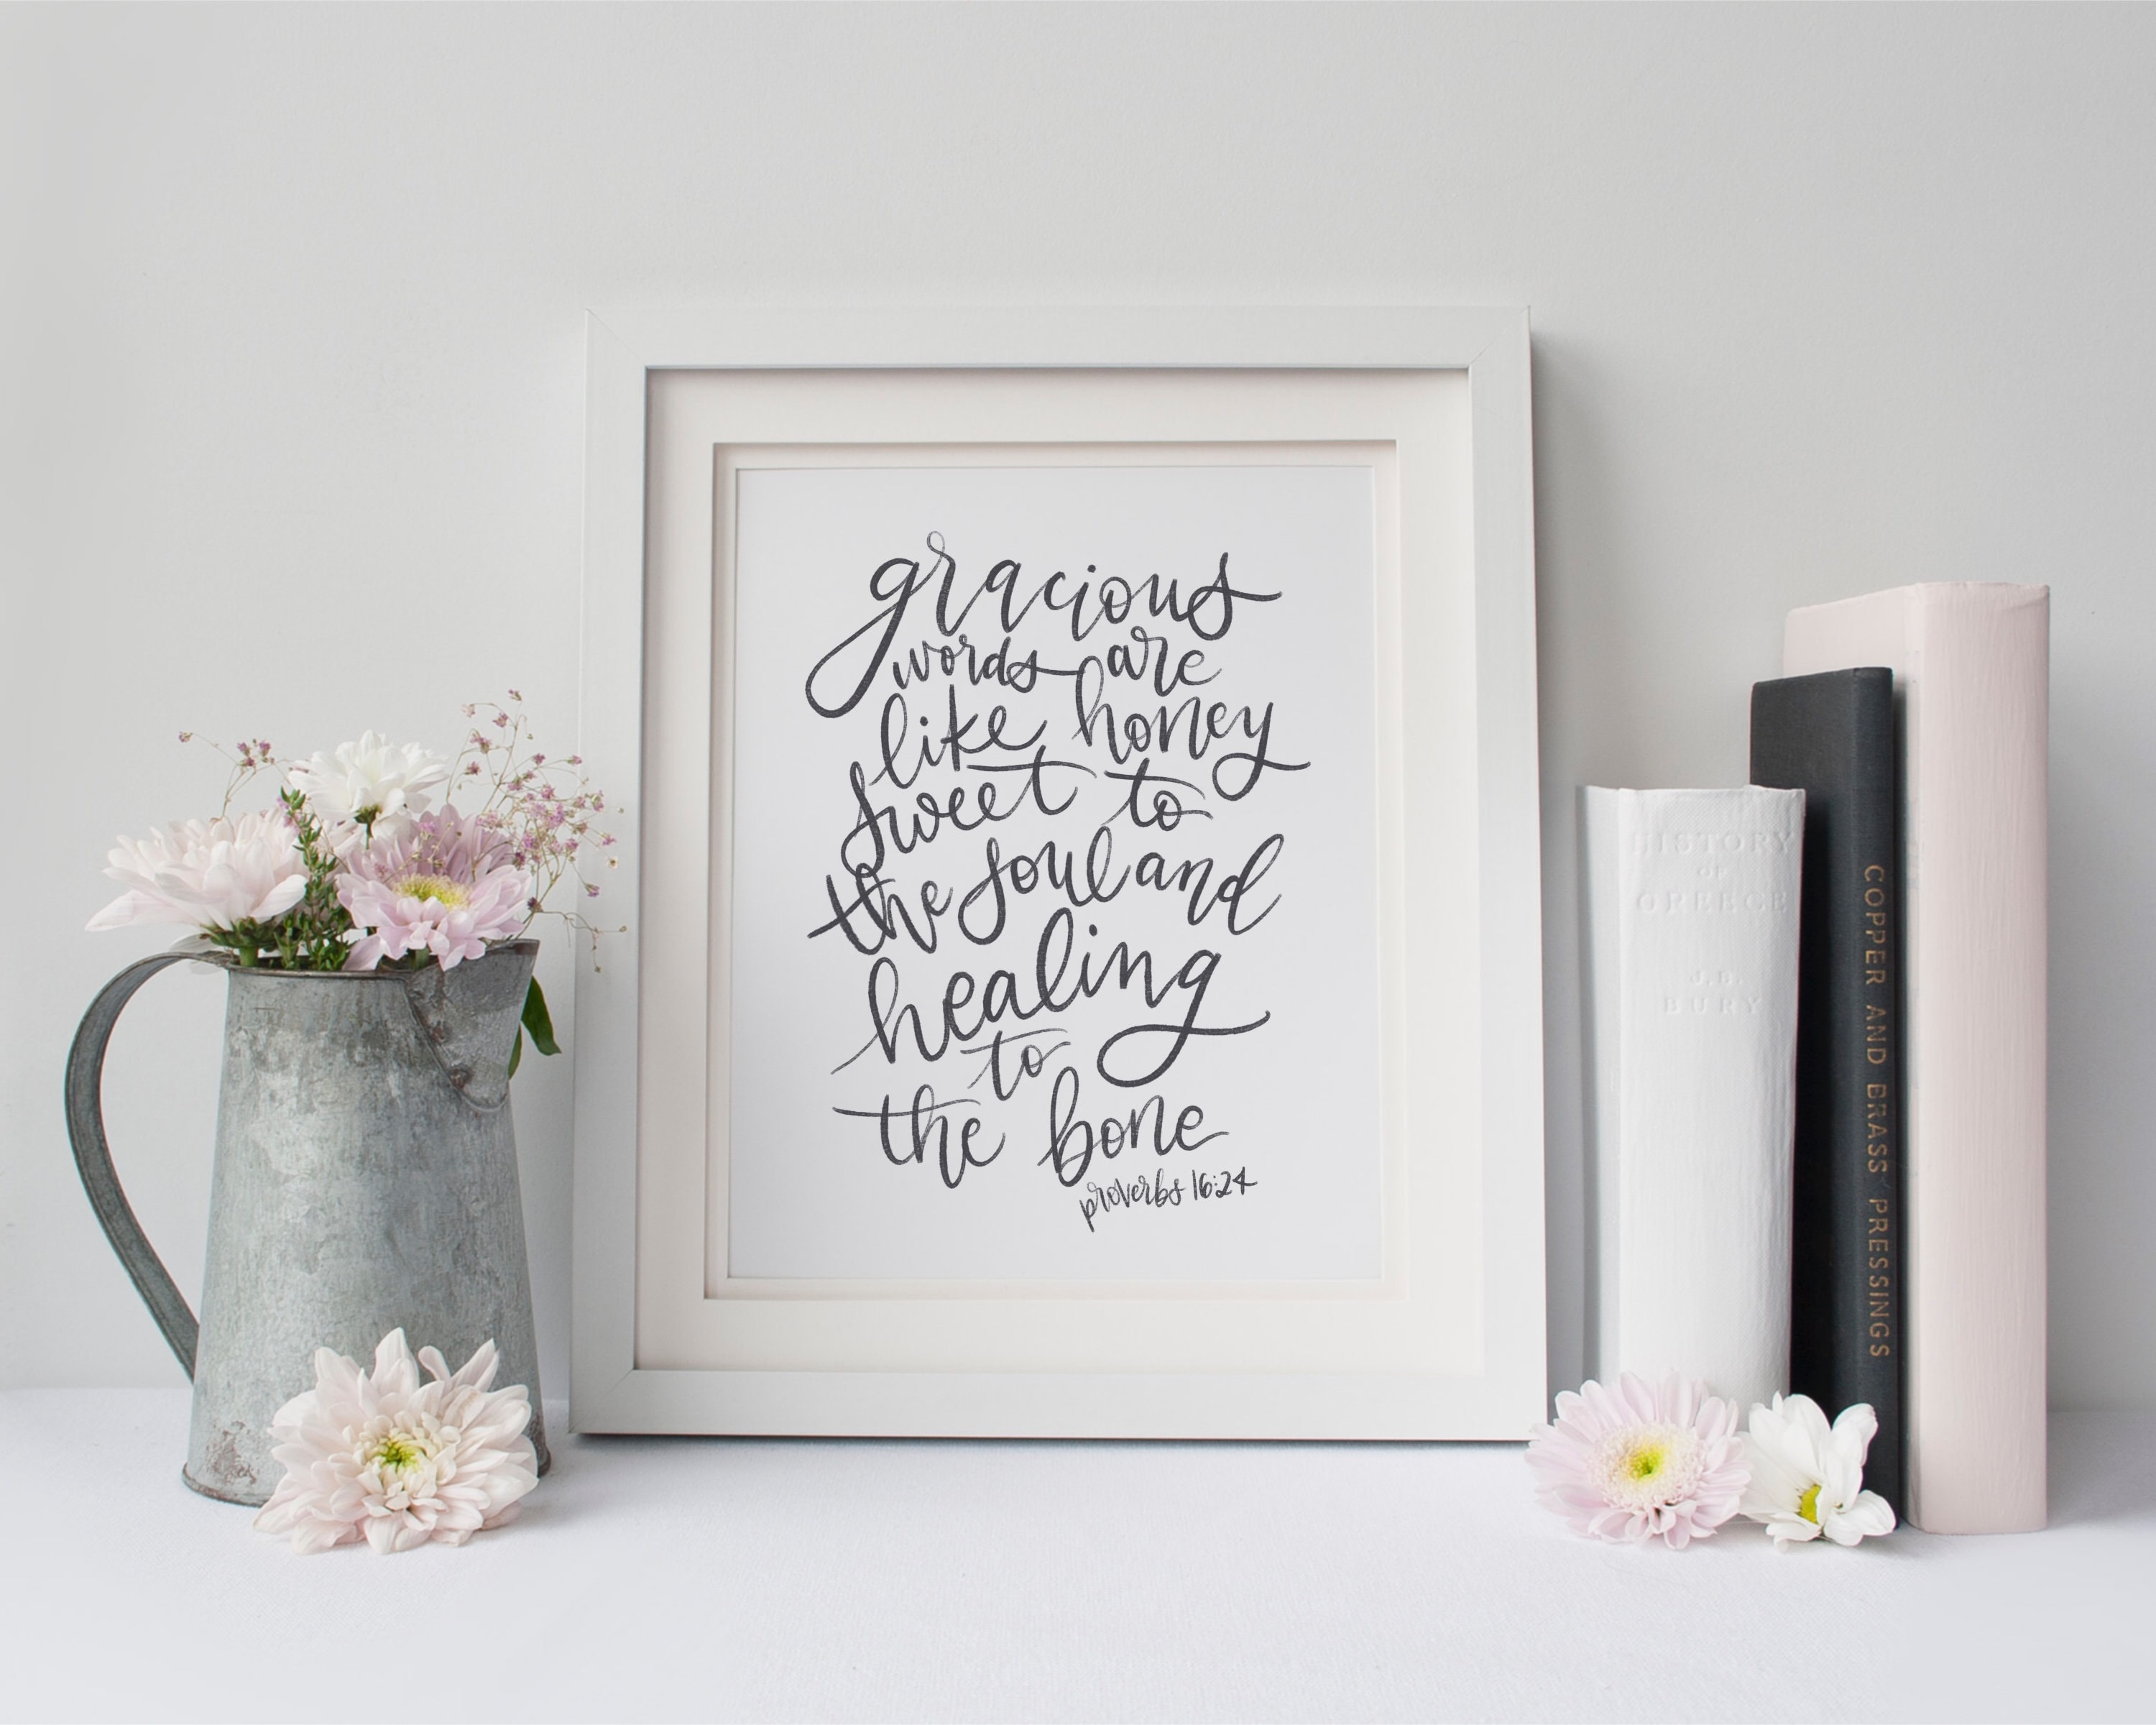 gracious
words are
like honey
sweet to
the soul and
healing
to
the bone
proverbs 16:24
HISTORY
OF
GREECE
J.B.
BURY
COPPER AND BRASS PRESSINGS